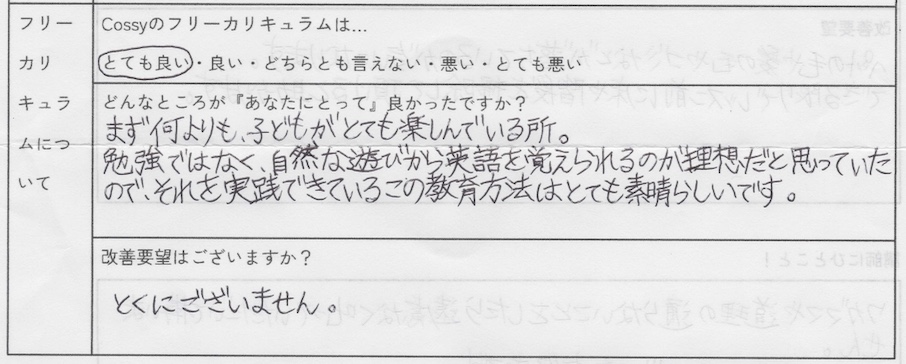 フリー
カリ
キュラ
ムにつ
いて
Cossyのフリーカリキュラムは…
とても良い・良い・どちらとも言えない・悪い・とても悪い
どんなところが『あなたにとって』良かったですか？
まず何よりも、子どもがとても楽しんでいる所。
勉強ではなく、自然な遊びから英語を覚えられるのが理想だと思っていた
ので、それを実践できているこの教育方法はとても素晴らしいです。
改善要望はございますか？
とくにございません。